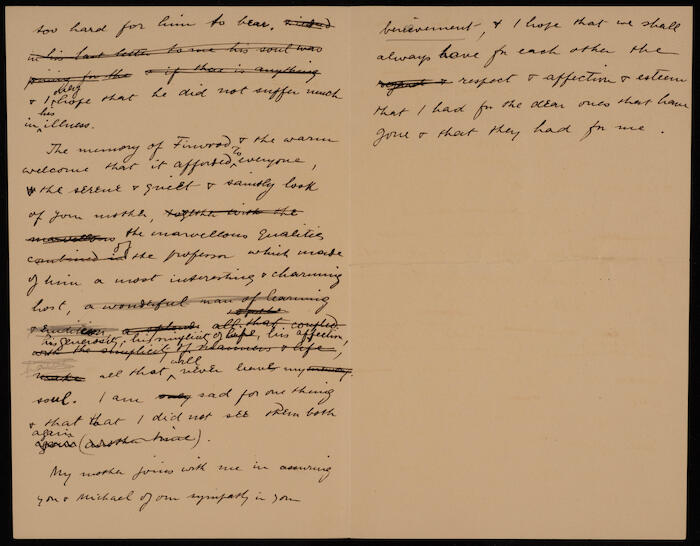 too hard for him to bear. indeed
in his last letter to me his soul was
pining for the & if there is anything
& I very hope that he did not suffer much
in his illness.
The memory of Finwood & the warm
welcome that it afforded to everyone,
& the serene & quiet & saintly look
of your mother, together with the
marvellous the marvellous qualities
combined in of the professor which made
of him a most interesting & charming
host, a wonderful man of learning
& erudition, a splendid all that coupled
his generosity, his simplicity of life, his affection,
with the simplicity of manners & life,
make all that, will never leave my memory.
soul. I am only sad for one thing
& that that I did not see them both
again (another time).
My mother joins with me in assuring
you & Michael of our sympathy in your
berievement, & I hope that we shall
always have for each other the
regard & respect & affection & esteem
that I had for the dear ones that have
gone & that they had for me.